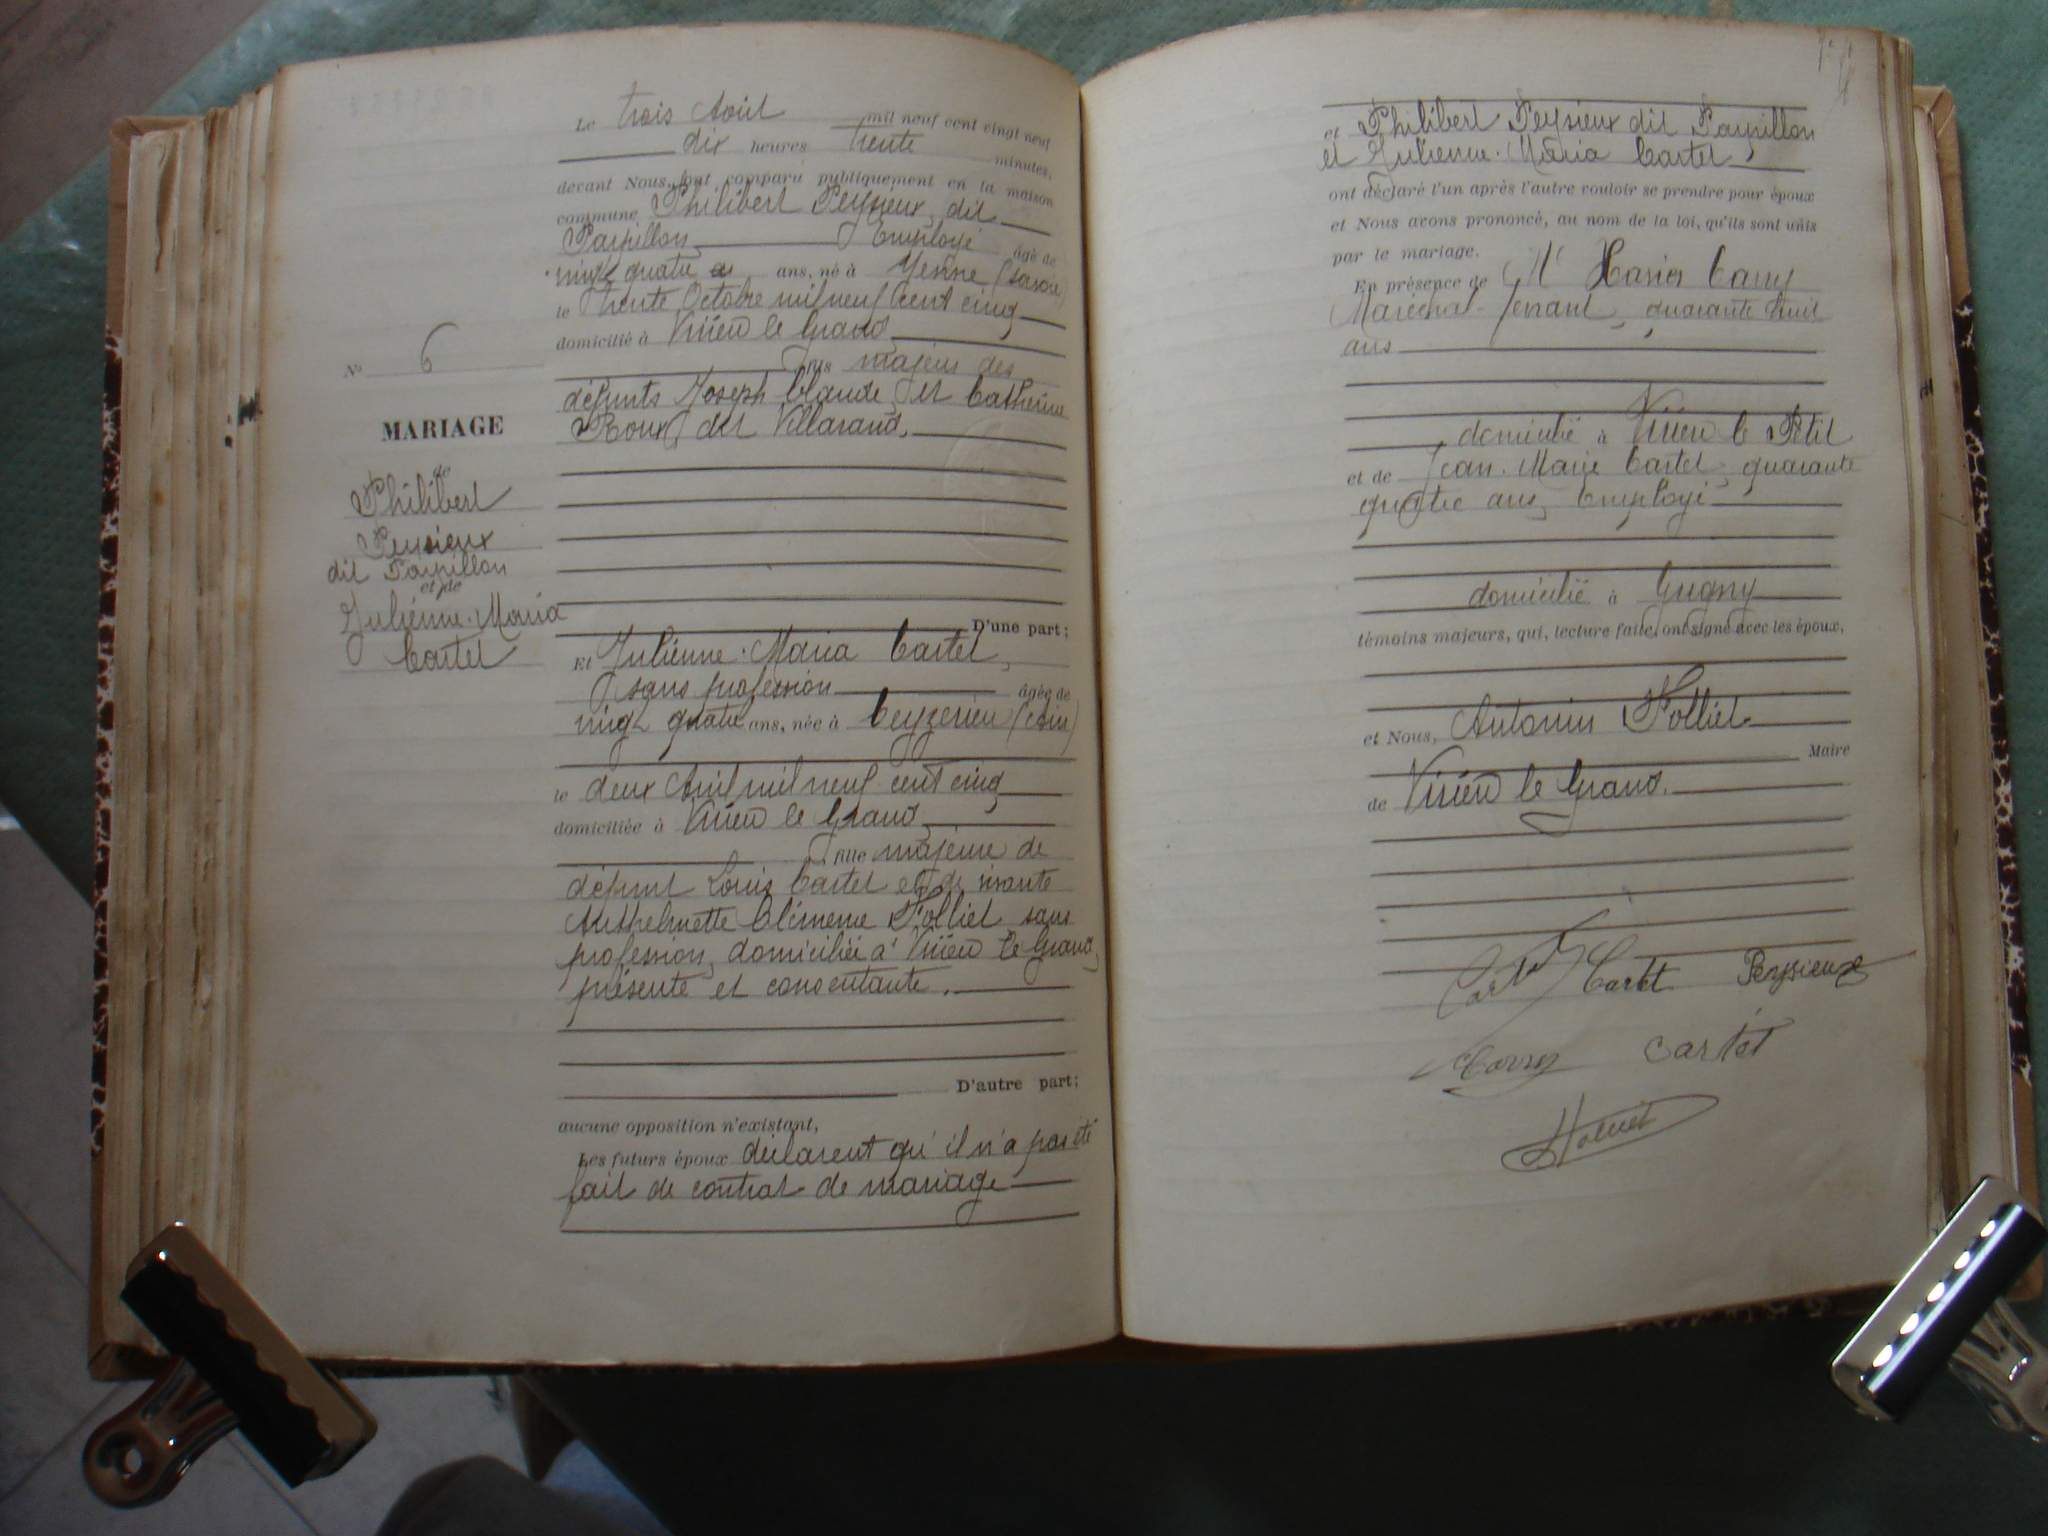 Le trois Août mil neuf cent vingt neuf
dix heures trente minutes,
devant Nous, ont comparu publiquement en la maison
commune Philibert Peysieux, dit
Papillon, Employé âgé de
vingt quatre ans, né à Yenne (Savoie)
le trente Octobre mil neuf cent cinq
domicilié à Virieu le Grand
fils majeur des
défunts Joseph Claude, et Catherine
Roux, dit Villarand,
No 6
MARIAGE
de
Philibert
Peysieux
dit Papillon
et de
Julienne-Maria
Cartet
D'une part;
Et Julienne-Maria Cartet,
sans profession âgée de
vingt quatre ans, née à Ceyzerieu (Ain)
le deux Avril mil neuf cent cinq
domiciliée à Virieu le Grand
fille majeure de
défunt Louis Cartet et de vivante
Anthelmette Clémence Folliet, sans
profession, domiciliée à Virieu le Grand,
présente et consentante.
D'autre part;
aucune opposition n'existant,
Les futurs époux déclarent qu'il n'a pas été
fait de contrat de mariage
et Philibert Peysieux dit Papillon
et Julienne-Maria Cartet,
ont déclaré l'un après l'autre vouloir se prendre pour époux
et Nous avons prononcé, au nom de la loi, qu'ils sont unis
par le mariage.
En présence de Mr Xavier Carry
Maréchal-ferrant, quarante huit
ans
domicilié à Virieu le Petit
et de Jean-Marie Cartet, quarante
quatre ans, Employé
domicilié à Gugny
témoins majeurs, qui, lecture faite, ont signé avec les époux,
et Nous, Antonin Folliet
Maire
de Virieu le Grand.
Cartet Cartet Peysieux
Carry Cartet
Folliet